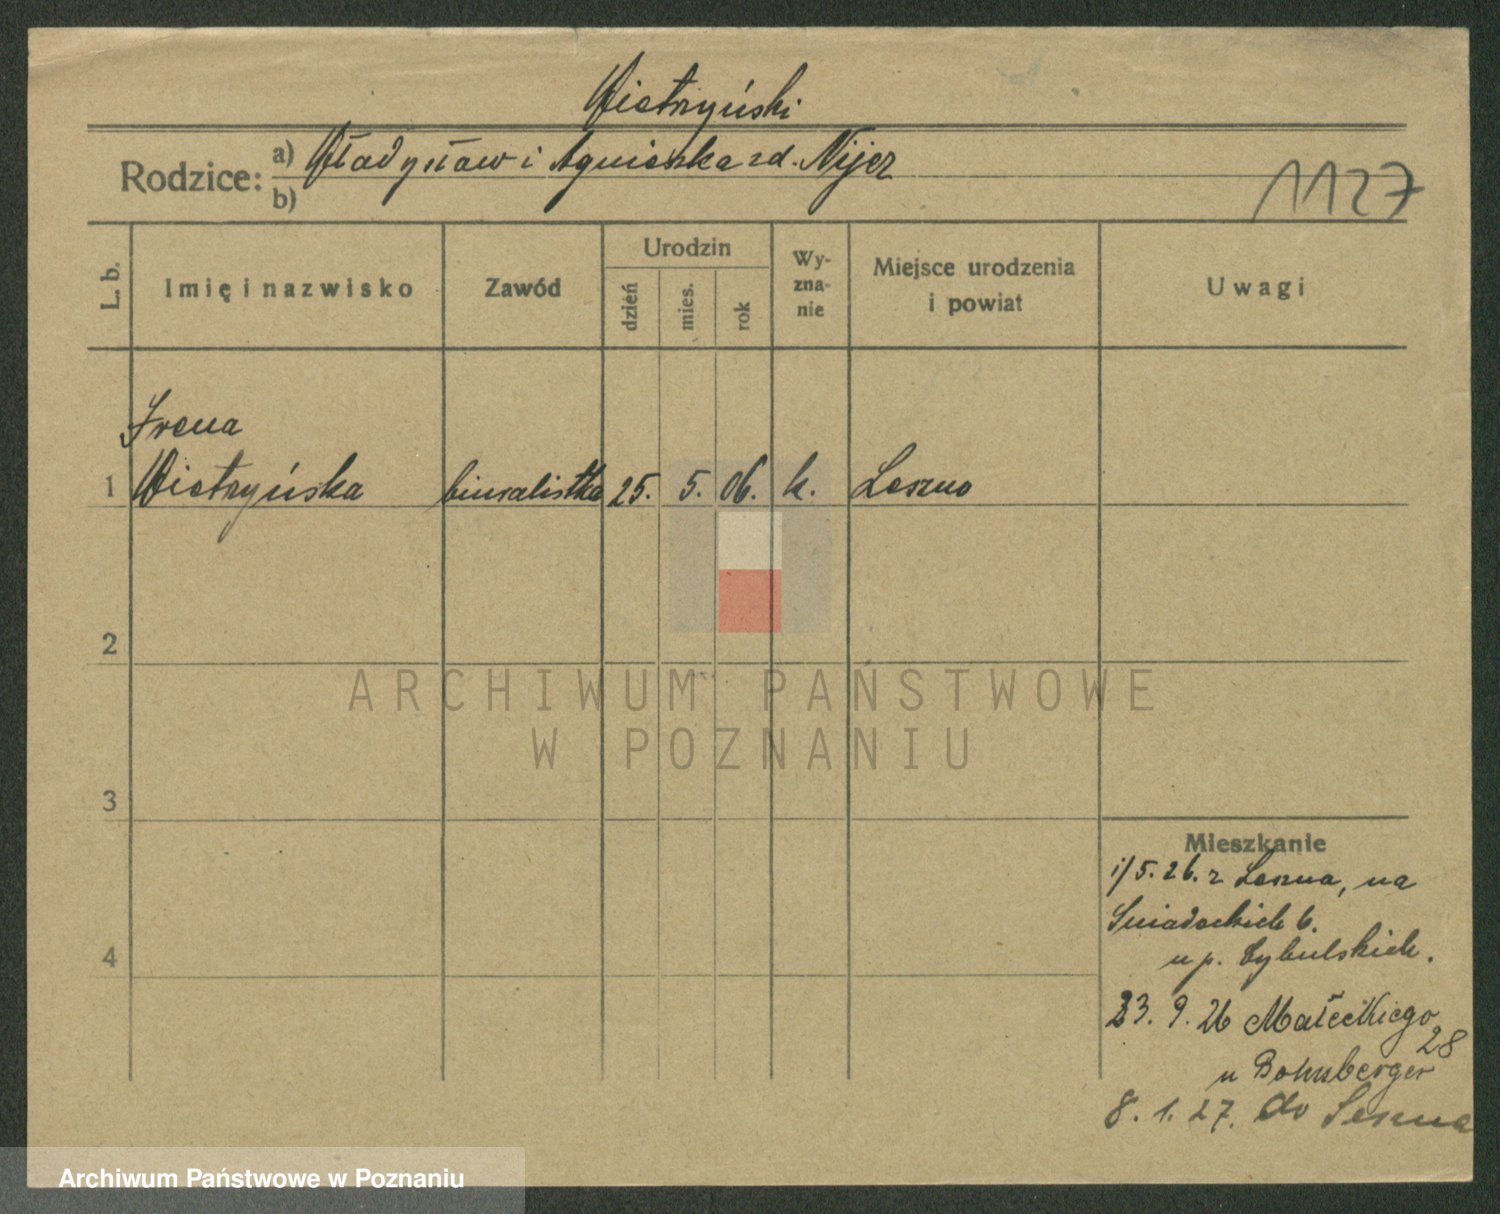 Wietrzyński
Rodzice: a) Władysław i Agnieszka zd. Nijer
b)
1127
L. b.
Imię i nazwisko
Zawód
Urodzin
dzień
mies.
rok
Wy-
zna-
nie
Miejsce urodzenia
i powiat
Uwagi
Irena
1 Wietrzyńska biuralistka 25. 5. 06. k. Leszno
2
ARCHIWUM PAŃSTWOWE
W POZNANIU
3
4
Mieszkanie
1/5. 26. z Leszna, na
Śniadeckich 6.
u p. Cybulskich.
23. 9. 26 Małeckiego
28
u
8. 1. 27. do Leszna
Archiwum Państwowe w Poznaniu